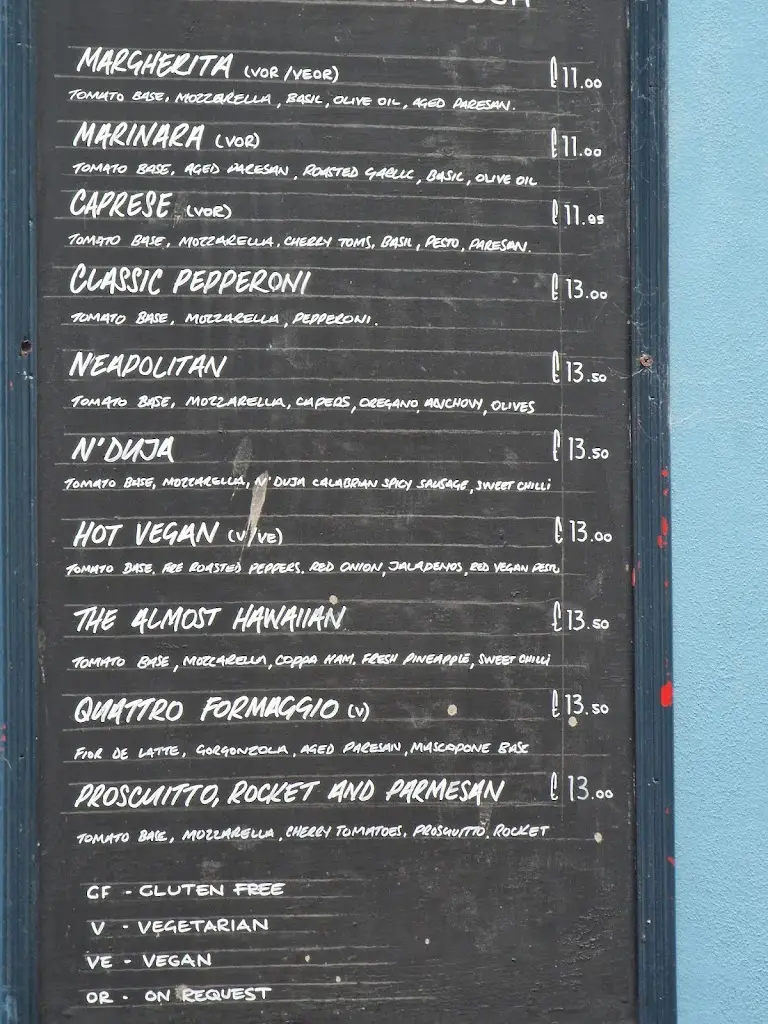 MARGHERITA (VOR/VEOR) £11.00
TOMATO BASE, MOZZARELLA, BASIL, OLIVE OIL, AGED PARESAN.
MARINARA (VOR) £11.00
TOMATO BASE, AGED PARESAN, ROASTED GARLIC, BASIL, OLIVE OIL
CAPRESE (VOR) £11.95
TOMATO BASE, MOZZARELLA, CHERRY TOMS, BASIL, PESTO, PARESAN.
CLASSIC PEPPERONI £13.00
TOMATO BASE, MOZZARELLA, PEPPERONI.
NEAPOLITAN £13.50
TOMATO BASE, MOZZARELLA, CAPERS, OREGANO, ANCHOVY, OLIVES
N'DUJA £13.50
TOMATO BASE, MOZZARELLA, N'DUJA CALABRIAN SPICY SAUSAGE, SWEET CHILLI
HOT VEGAN (V/VE) £13.00
TOMATO BASE, FRE ROASTED PEPPERS, RED ONION, JALAPENOS, RED VEGAN PESTO
THE ALMOST HAWAIIAN £13.50
TOMATO BASE, MOZZARELLA, COPPA HAM, FRESH PINEAPPLE, SWEET CHILLI
QUATTRO FORMAGGIO (V) £13.50
FIOR DE LATTE, GORGONZOLA, AGED PARESAN, MASCAPONE BASE
PROSCUITTO, ROCKET AND PARMESAN £13.00
TOMATO BASE, MOZZARELLA, CHERRY TOMATOES, PROSCUITTO, ROCKET
GF - GLUTEN FREE
V - VEGETARIAN
VE - VEGAN
OR - ON REQUEST